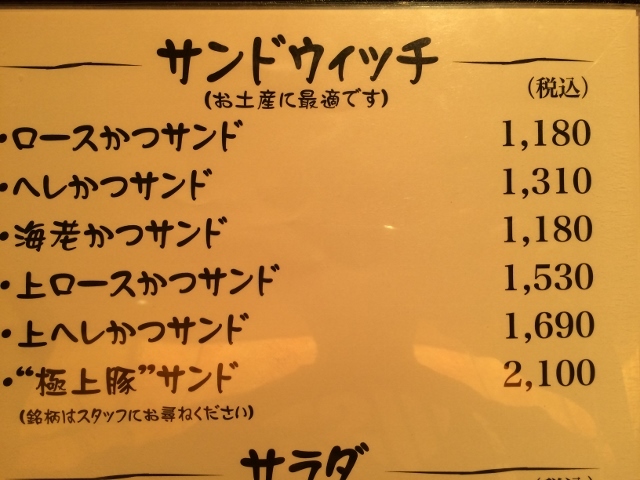 サンドウィッチ
(お土産に最適です)
(税込)
・ロースかつサンド 1,180
・ヘレかつサンド 1,310
・海老かつサンド 1,180
・上ロースかつサンド 1,530
・上ヘレかつサンド 1,690
・“極上豚”サンド 2,100
(銘柄はスタッフにお尋ねください)
サラダ